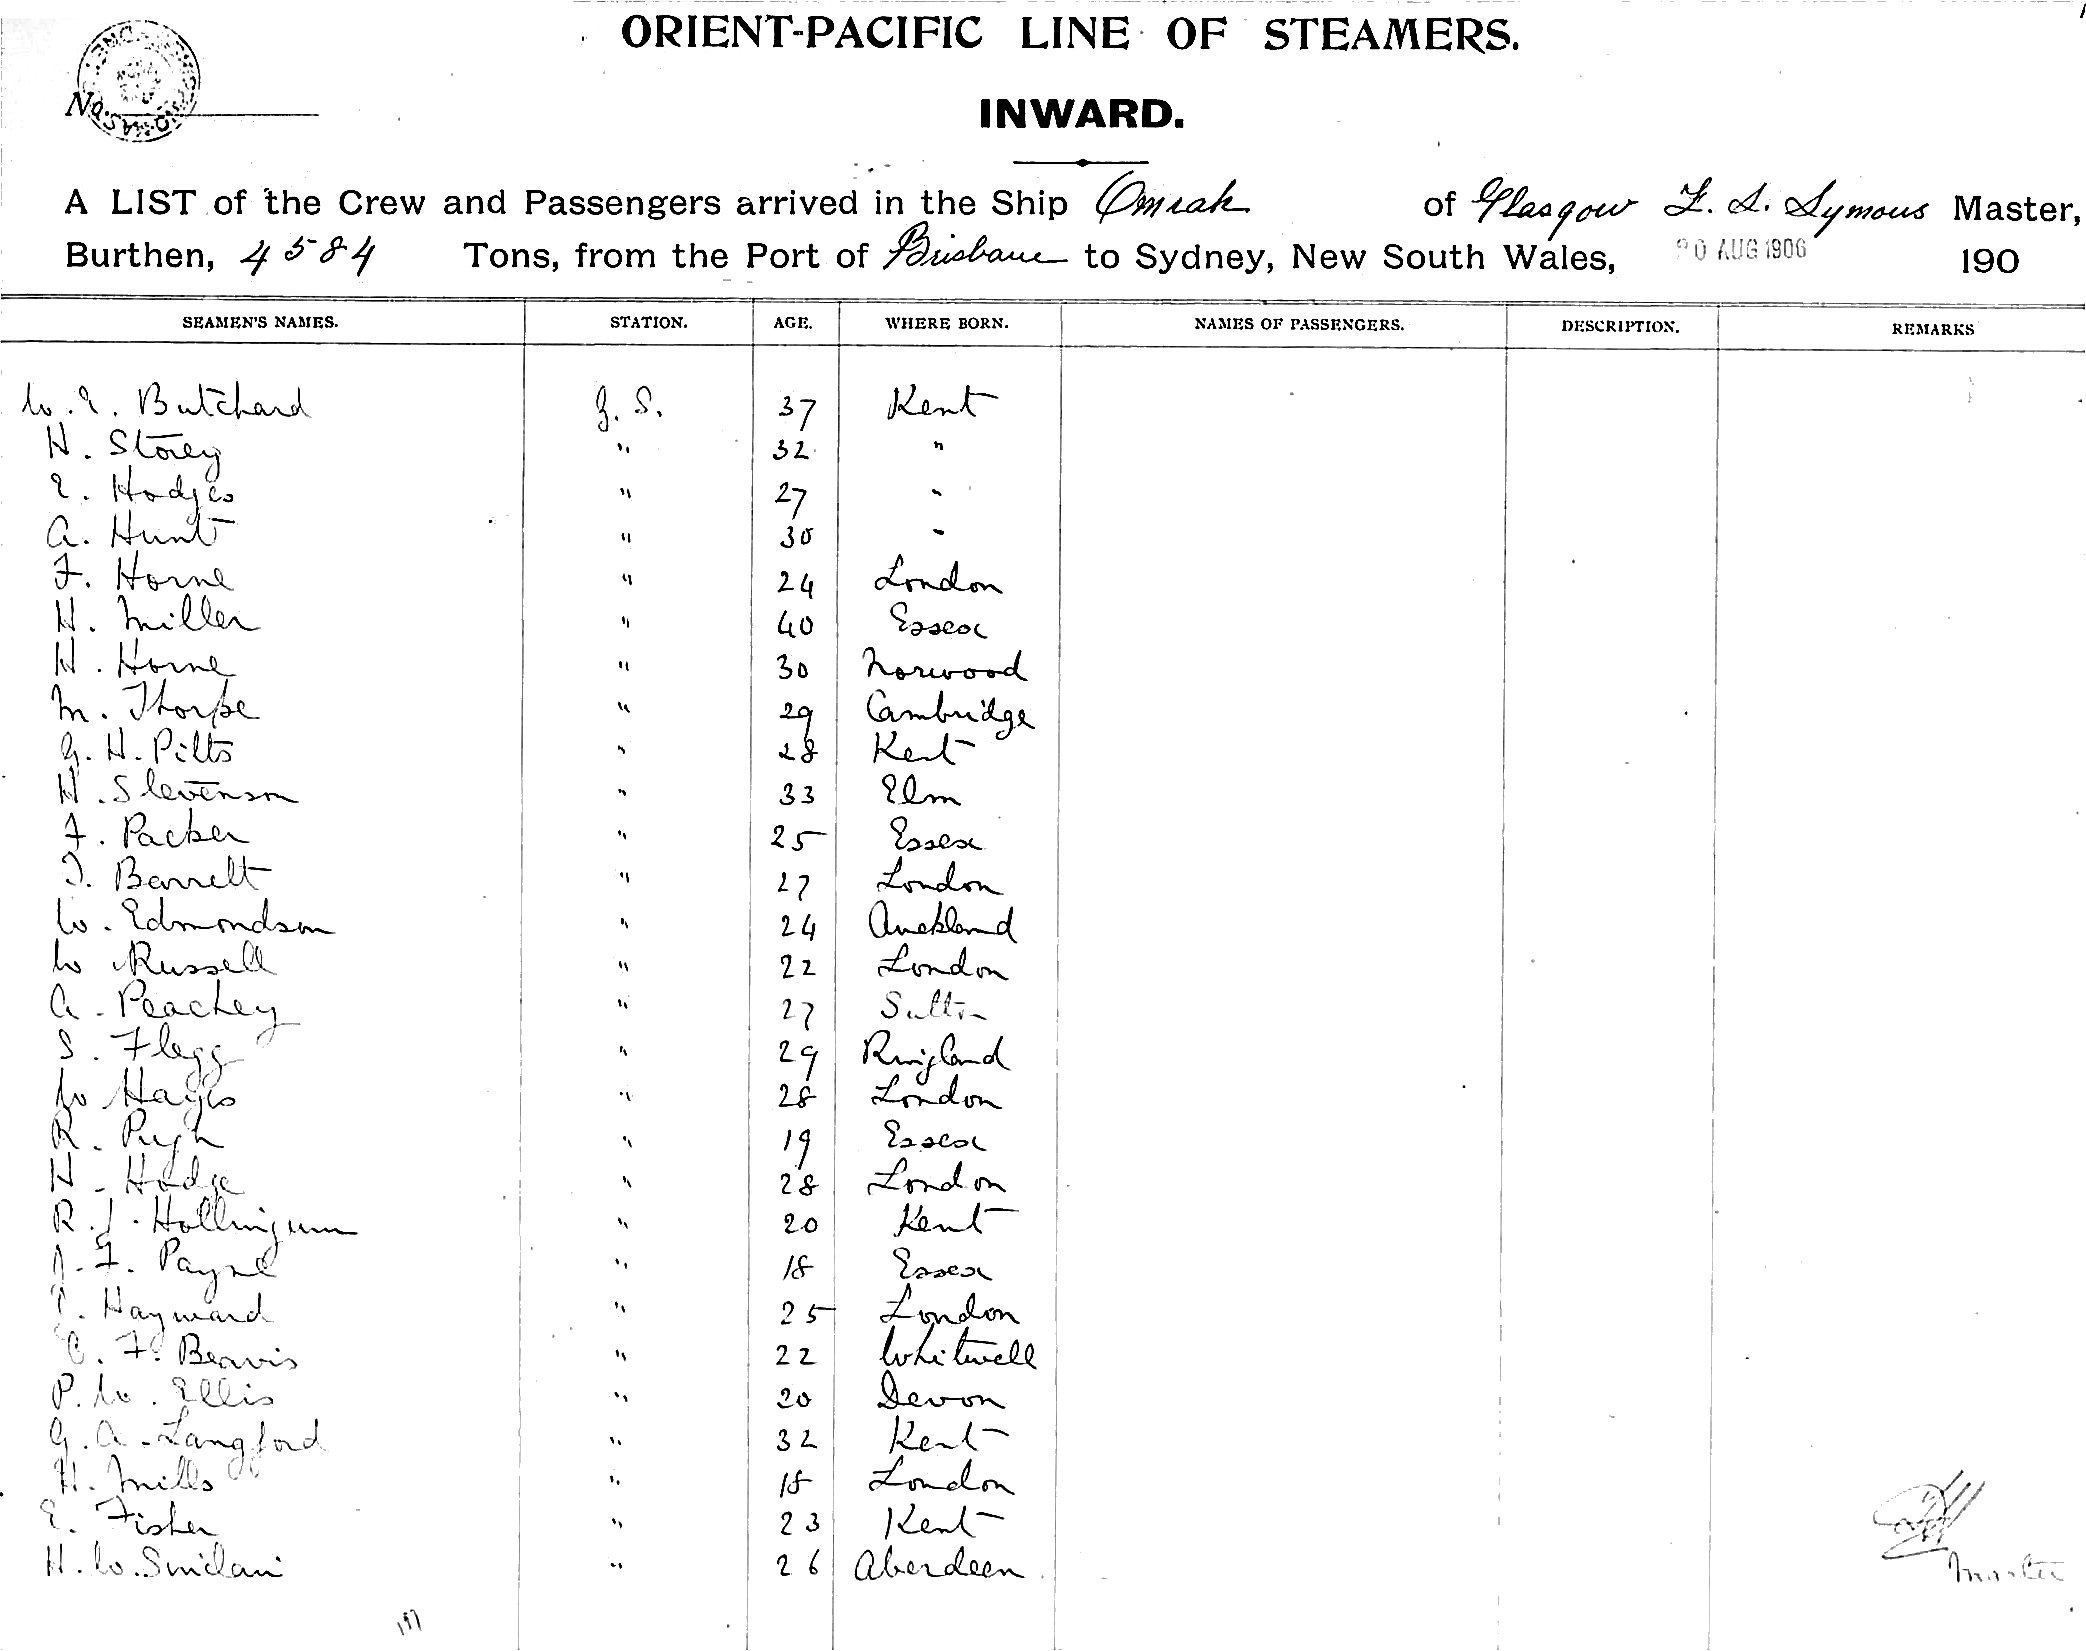 ORIENT-PACIFIC LINE OF STEAMERS.
No.
INWARD.
A LIST of the Crew and Passengers arrived in the Ship Omrah of Glasgow F. S. Symons Master,
Burthen, 4584 Tons, from the Port of Brisbane to Sydney, New South Wales, 20 AUG 1906 190
SEAMEN'S NAMES. STATION. AGE. WHERE BORN. NAMES OF PASSENGERS. DESCRIPTION. REMARKS
W. E. Butchard G. S. 37 Kent
H. Storey " 32 "
E. Hodges " 27 "
A. Hunt " 30 "
F. Horne " 24 London
H. Miller " 40 Essex
H. Horne " 30 Norwood
M. Thorpe " 29 Cambridge
G. H. Pitts " 28 Kent
H. Stevenson " 33 Elm
F. Packer " 25 Essex
T. Barrett " 27 London
W. Edmondson " 24 Auckland
W Russell " 22 London
A. Peachey " 27 Sutton
S. Flegg " 29 Ringland
W Hayes " 28 London
R. Pugh " 19 Essex
H. Hodge " 28 London
R. J. Hollingum " 20 Kent
J. F. Payne " 18 Essex
Hayward " 25 London
C. F. Beavis " 22 Whitwell
P. W. Ellis " 20 Devon
G. A. Langford " 32 Kent
H. Mills " 18 London
E. Fisher " 23 Kent
H. W. Sinclair " 26 Aberdeen
Master